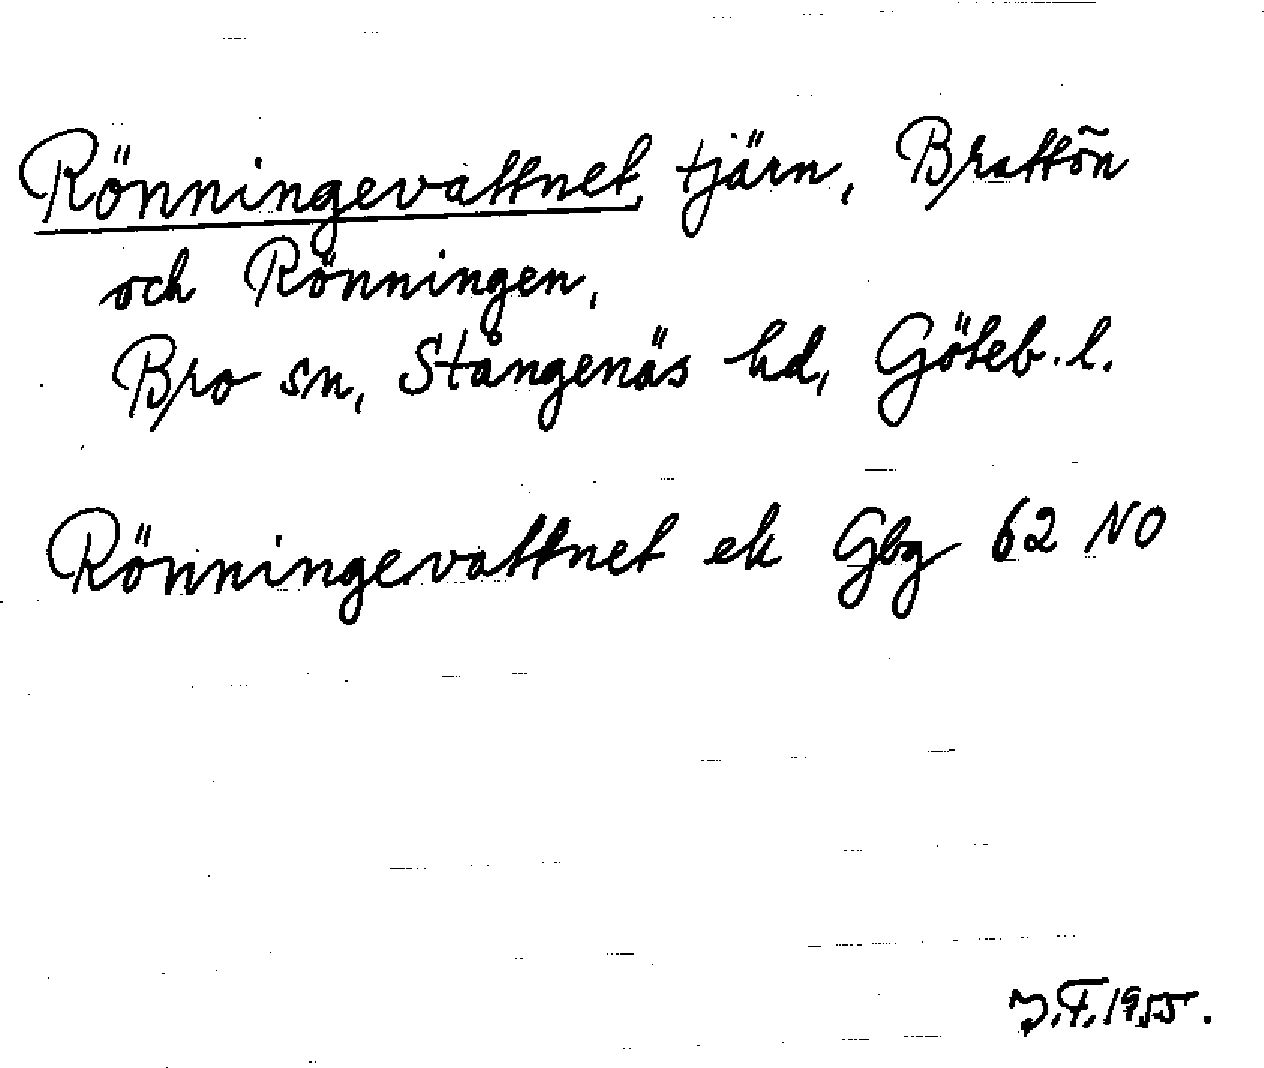 Rönningevattnet, tjärn, Brattön
och Rönningen,
Bro sn, Stångenäs hd, Göteb. l.
Rönningevattnet ek Gbg 62 NO
J.F. 1955.